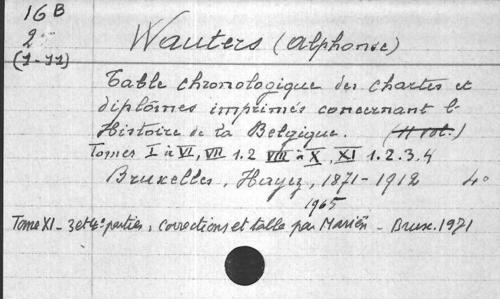 16 B
2
(1-11)
Wauters (Alphonse)
Table chronologique des chartes et
diplômes imprimés concernant l'
Histoire de la Belgique. (11 vol.)
Tomes I à VI, VII 1.2 VIII à X, XI 1.2.3.4
Bruxelles, Hayez, 1871-1912 4°
1965
Tome XI - 3e et 4e parties, corrections et table par Mariën - Brux. 1971